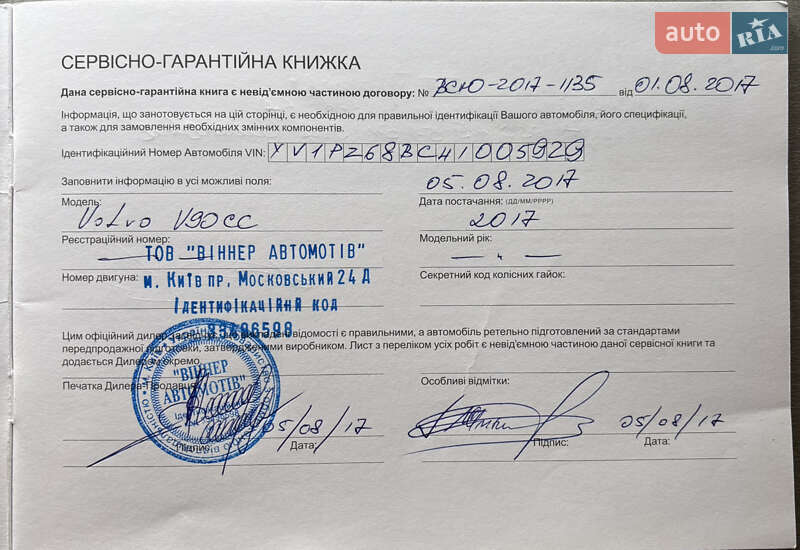 auto RIA .com
СЕРВІСНО-ГАРАНТІЙНА КНИЖКА
Дана сервісно-гарантійна книга є невід'ємною частиною договору: № ВСЮ-2017-1135 від 01.08.2017
Інформація, що занотовується на цій сторінці, є необхідною для правильної ідентифікації Вашого автомобіля, його специфікації,
а також для замовлення необхідних змінних компонентів.
Ідентифікаційний Номер Автомобіля VIN: YV1PZ68BC41005929
Заповнити інформацію в усі можливі поля: 05.08.2017
Модель: Дата постачання: (ДД/ММ/РРРР)
Volvo V90CC 2017
Реєстраційний номер: Модельний рік:
ТОВ "ВІННЕР АВТОМОТІВ"
Номер двигуна: м. Київ пр. Московський 24 Д Секретний код колісних гайок:
Ідентифікаційний код
33496598
Цим офіційний дилер викладені відомості є правильними, а автомобіль ретельно підготовлений за стандартами
передпродажної підготовки, затвердженими виробником. Лист з переліком усіх робіт є невід'ємною частиною даної сервісної книги та
додається Дилером окремо.
Печатка Дилера-Продавця: Особливі відмітки:
"ВІННЕР
АВТОМОТІВ"
05/08/17 05/08/17
Підпис: Дата: Підпис: Дата: